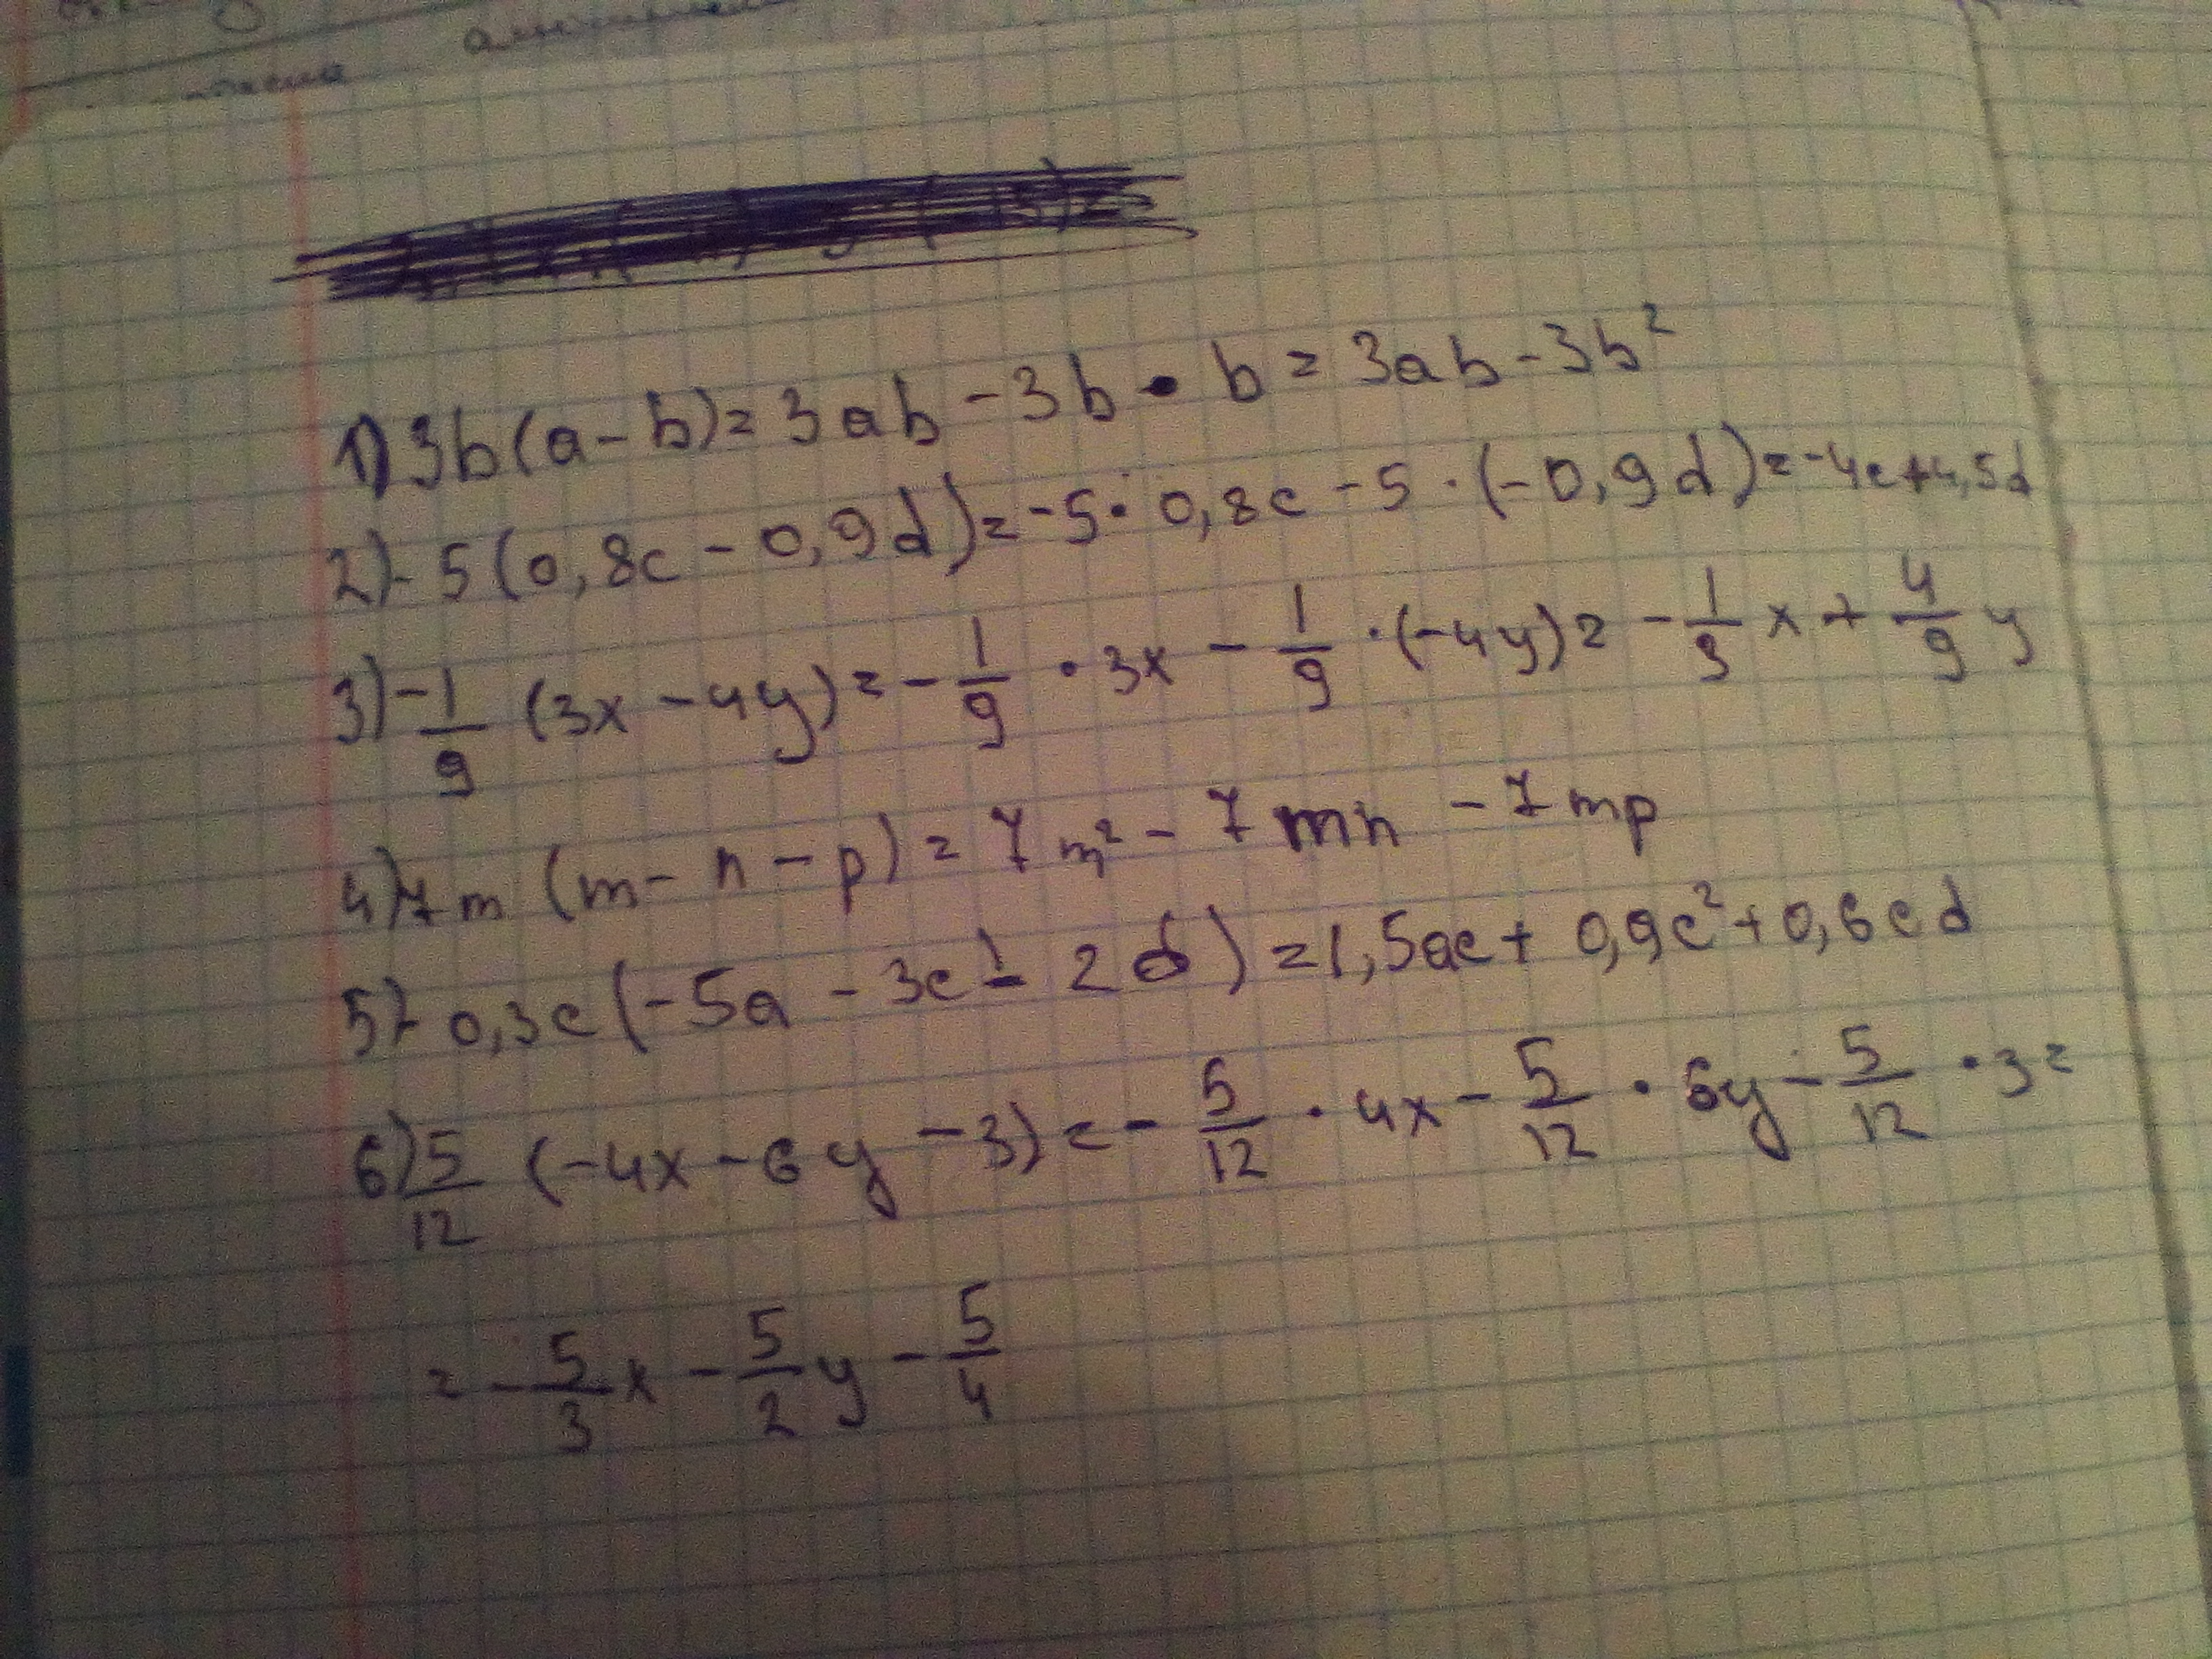 1) 3b(a-b)=3ab-3b•b=3ab-3b²
2) -5(0,8c-0,9d)=-5·0,8c-5·(-0,9d)=-4c+4,5d
3) -1/9 (3x-4y)=-1/9·3x-1/9·(-4y)=-1/3x+4/9y
4) 7m(m-n-p)=7m²-7mn-7mp
5) -0,3c(-5a-3c-2d)=1,5ac+0,9c²+0,6cd
6) 5/12 (-4x-6y-3)=-5/12·4x-5/12·6y-5/12·3=
=-5/3x-5/2y-5/4